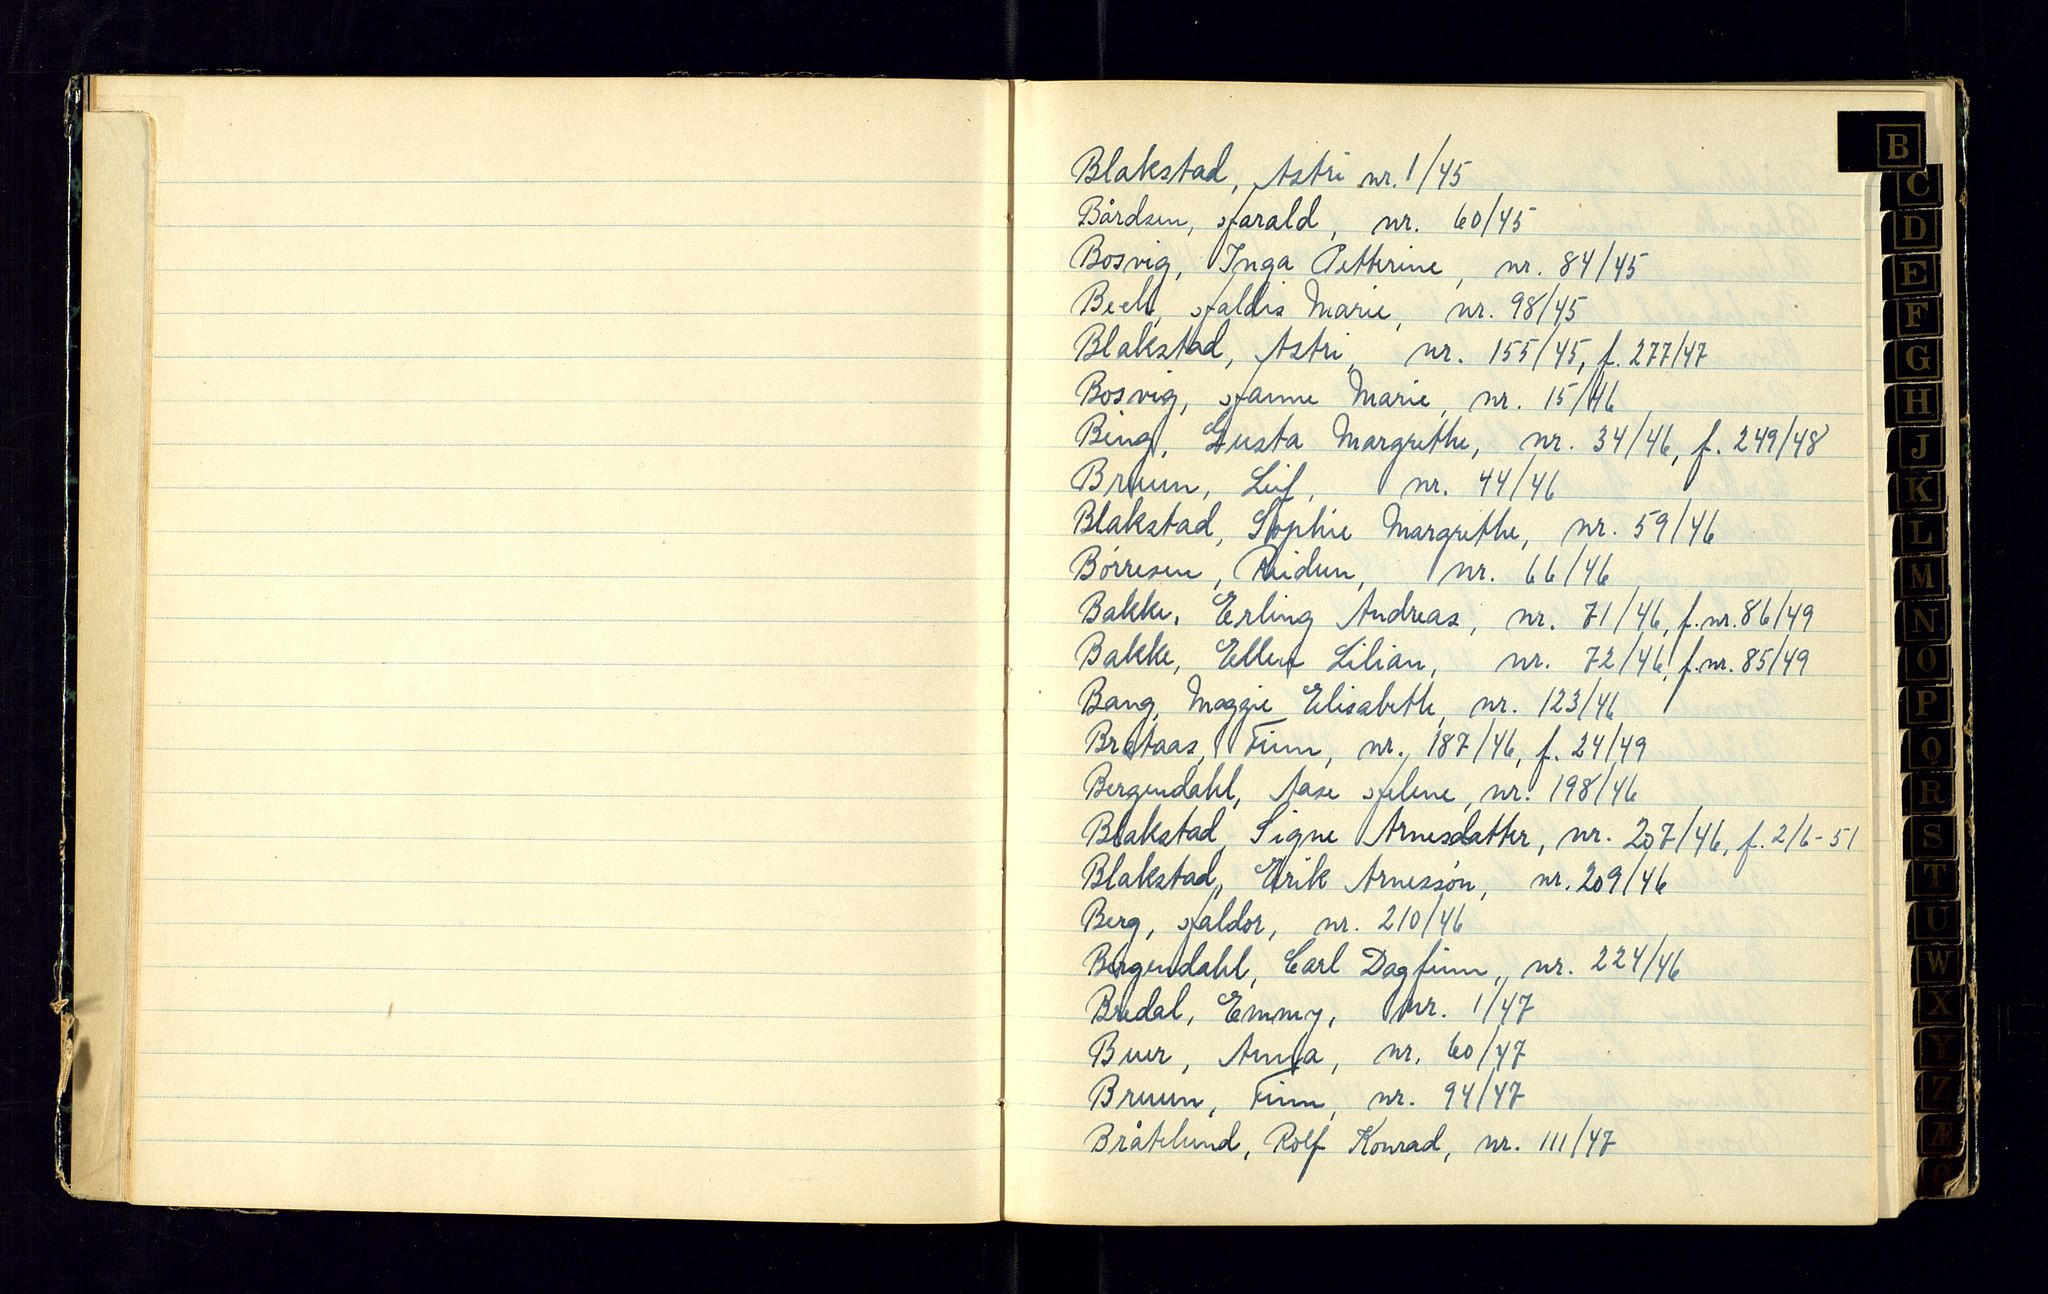 Blakstad, Astri nr. 1/45
Bårdsen, Harald, nr. 60/45
Bosvig, Inga Petterine, nr. 84/45
Beck, Haldis Marie, nr. 98/45
Blakstad, Astri, nr. 155/45, f. 277/47
Bosvig, Hanne Marie, nr. 15/46
Bing, Gusta Margrethe, nr. 34/46, f. 249/48
Bruun, Leif, nr. 44/46
Blakstad, Sophie Margrethe, nr. 59/46
Børresen, Reidun, nr. 66/46
Bakke, Erling Andreas, nr. 71/46, f. nr. 86/49
Bakke, Ellen Lilian, nr. 72/46, f. nr. 85/49
Bang, Maggie Elisabeth, nr. 123/46
Bråtaas, Finn, nr. 187/46, f. 24/49
Bergendahl, Aase Helene, nr. 198/46
Blakstad, Signe Arnesdatter, nr. 207/46, f. 2/6-51
Blakstad, Erik Arnessøn, nr. 209/46
Berg, Haldor, nr. 210/46
Bergendahl, Carl Dagfinn, nr. 224/46
Bredal, Emmy, nr. 1/47
Buer, Anna, nr. 60/47
Bruun, Finn, nr. 94/47
Bråtelund, Rolf Konrad, nr. 111/47
B
C
D
E
F
G
H
J
K
L
M
N
O
P
Q
R
S
T
U
W
X
Y
Z
Æ
Ø